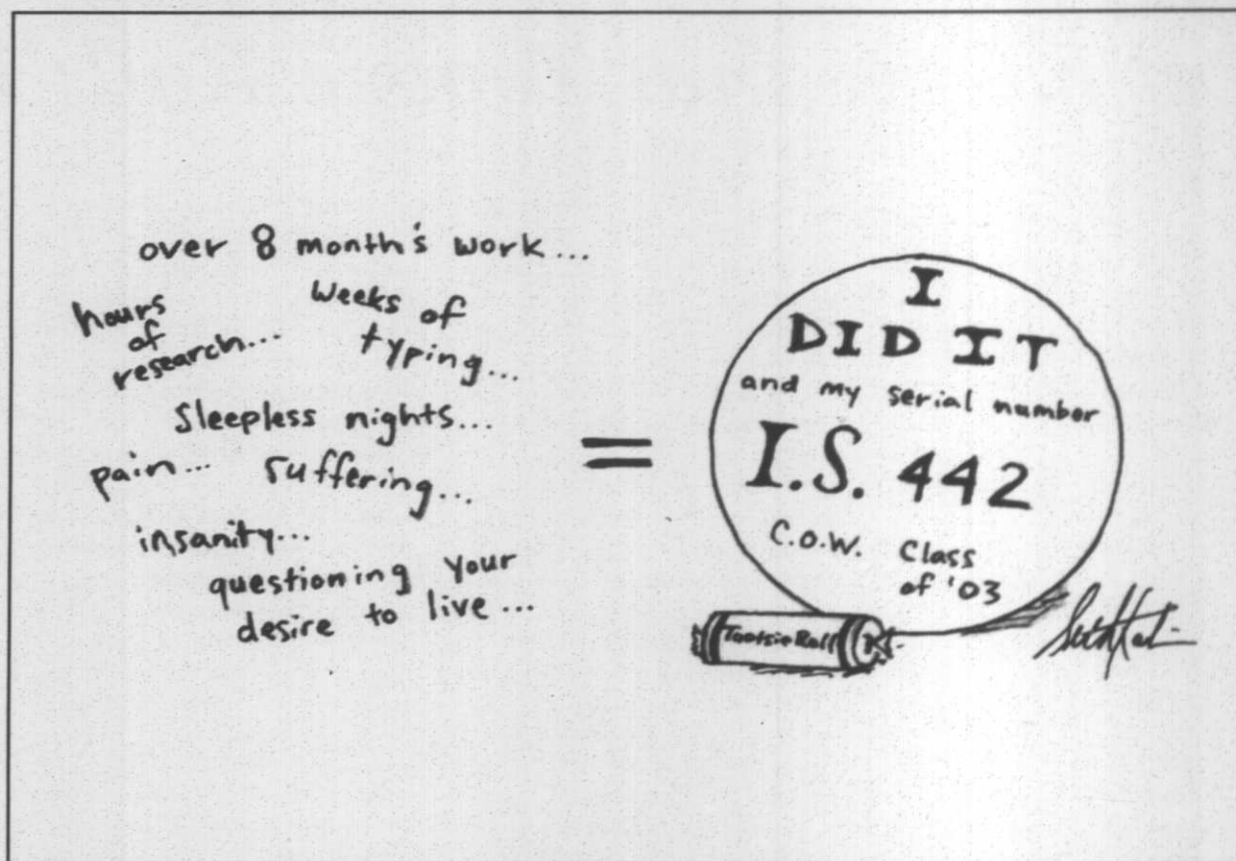 over 8 month's work...
hours
of
research...
Weeks of
typing...
Sleepless nights...
pain... suffering...
insanity...
questioning your
desire to live...
=
I
DID IT
and my serial number
I.S. 442
C.O.W. Class
of '03
Tootsie Roll